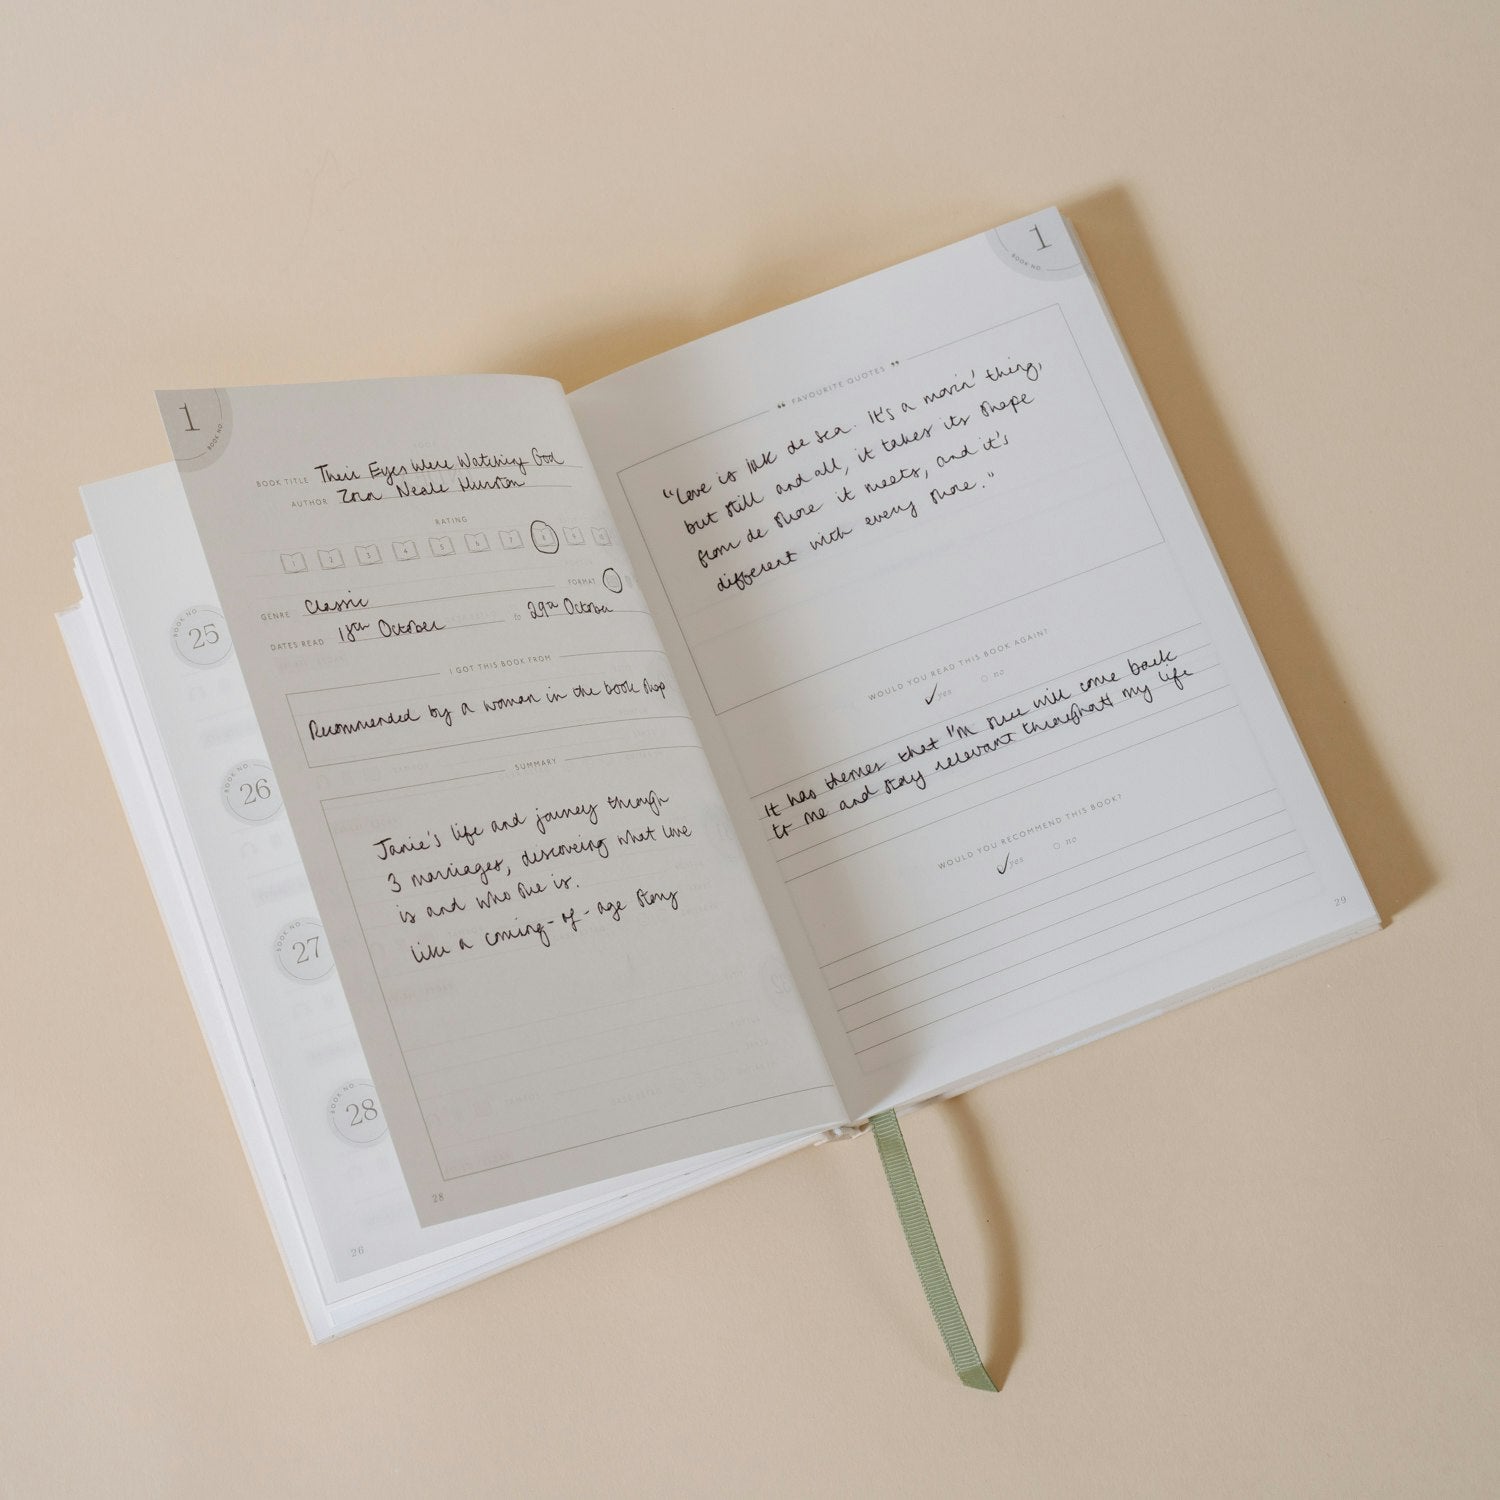 1
BOOK NO
BOOK TITLE Their Eyes Were Watching God
AUTHOR Zora Neale Hurston
RATING
1 2 3 4 5 6 7 8 9 10
GENRE Classic FORMAT
DATES READ 18th October to 29th October
I GOT THIS BOOK FROM
Recommended by a woman in the book shop
SUMMARY
Janie's life and journey through
3 marriages, discovering what love
is and who she is.
Like a coming-of-age story
28
BOOK NO 25
BOOK NO 26
BOOK NO 27
BOOK NO 28
26
1
BOOK NO
“ FAVOURITE QUOTES ”
"Love is lak de sea. It's a movin' thing,
but still and all, it takes its shape
from de shore it meets, and it's
different with every shore."
WOULD YOU READ THIS BOOK AGAIN?
yes no
It has themes that I'm sure will come back
to me and stay relevant throughout my life
WOULD YOU RECOMMEND THIS BOOK?
yes no
29